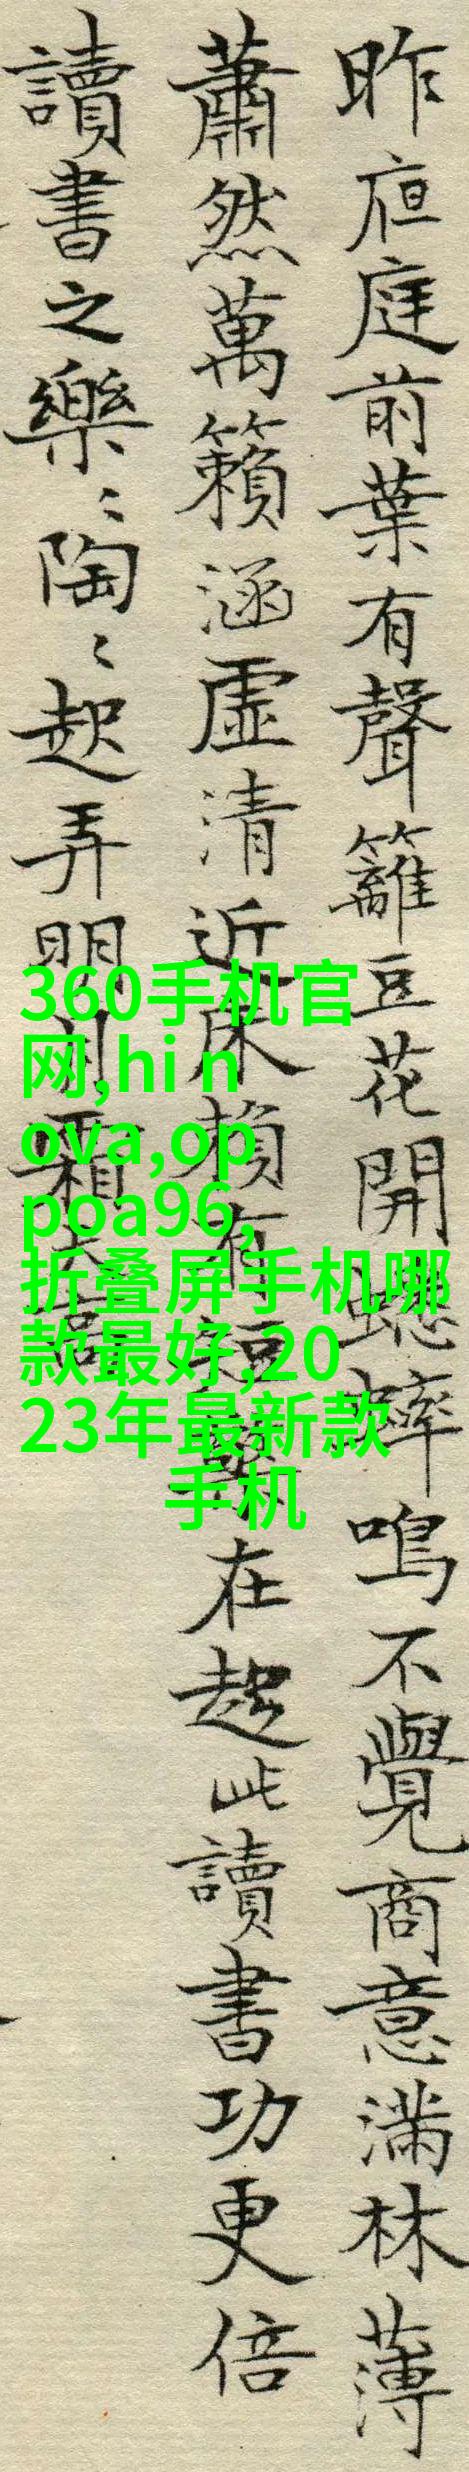 昨庭前葉有聲籬豆花開蟋蟀鳴不覺商意滿林薄
蕭然萬籟涵虛清近床賴有短檠在起此讀書功更倍
讀書之樂〻陶〻起弄明月霜天高
360手机官
网,hi n
ova,op
poa96,
折叠屏手机哪
款最好,20
23年最新款
手机